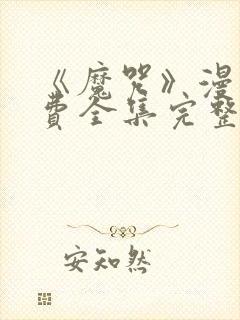 《魔咒》漫
费全集完整
安知然